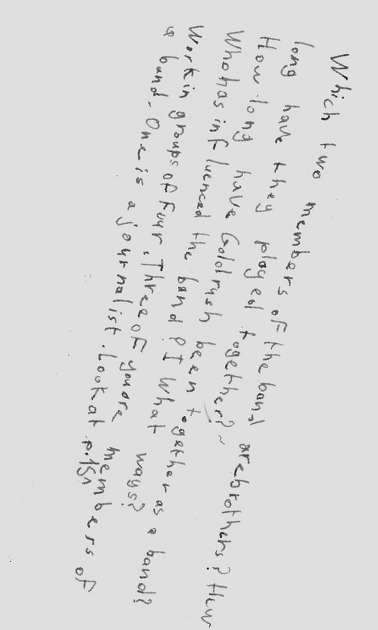 Which two members of the band are brothers? How
long have they played together?
How long have Goldrush been together as a band?
Who has influenced the band? I What ways?
Work in groups of four. Three of you are members of
a band. One is a journalist. Look at p.151